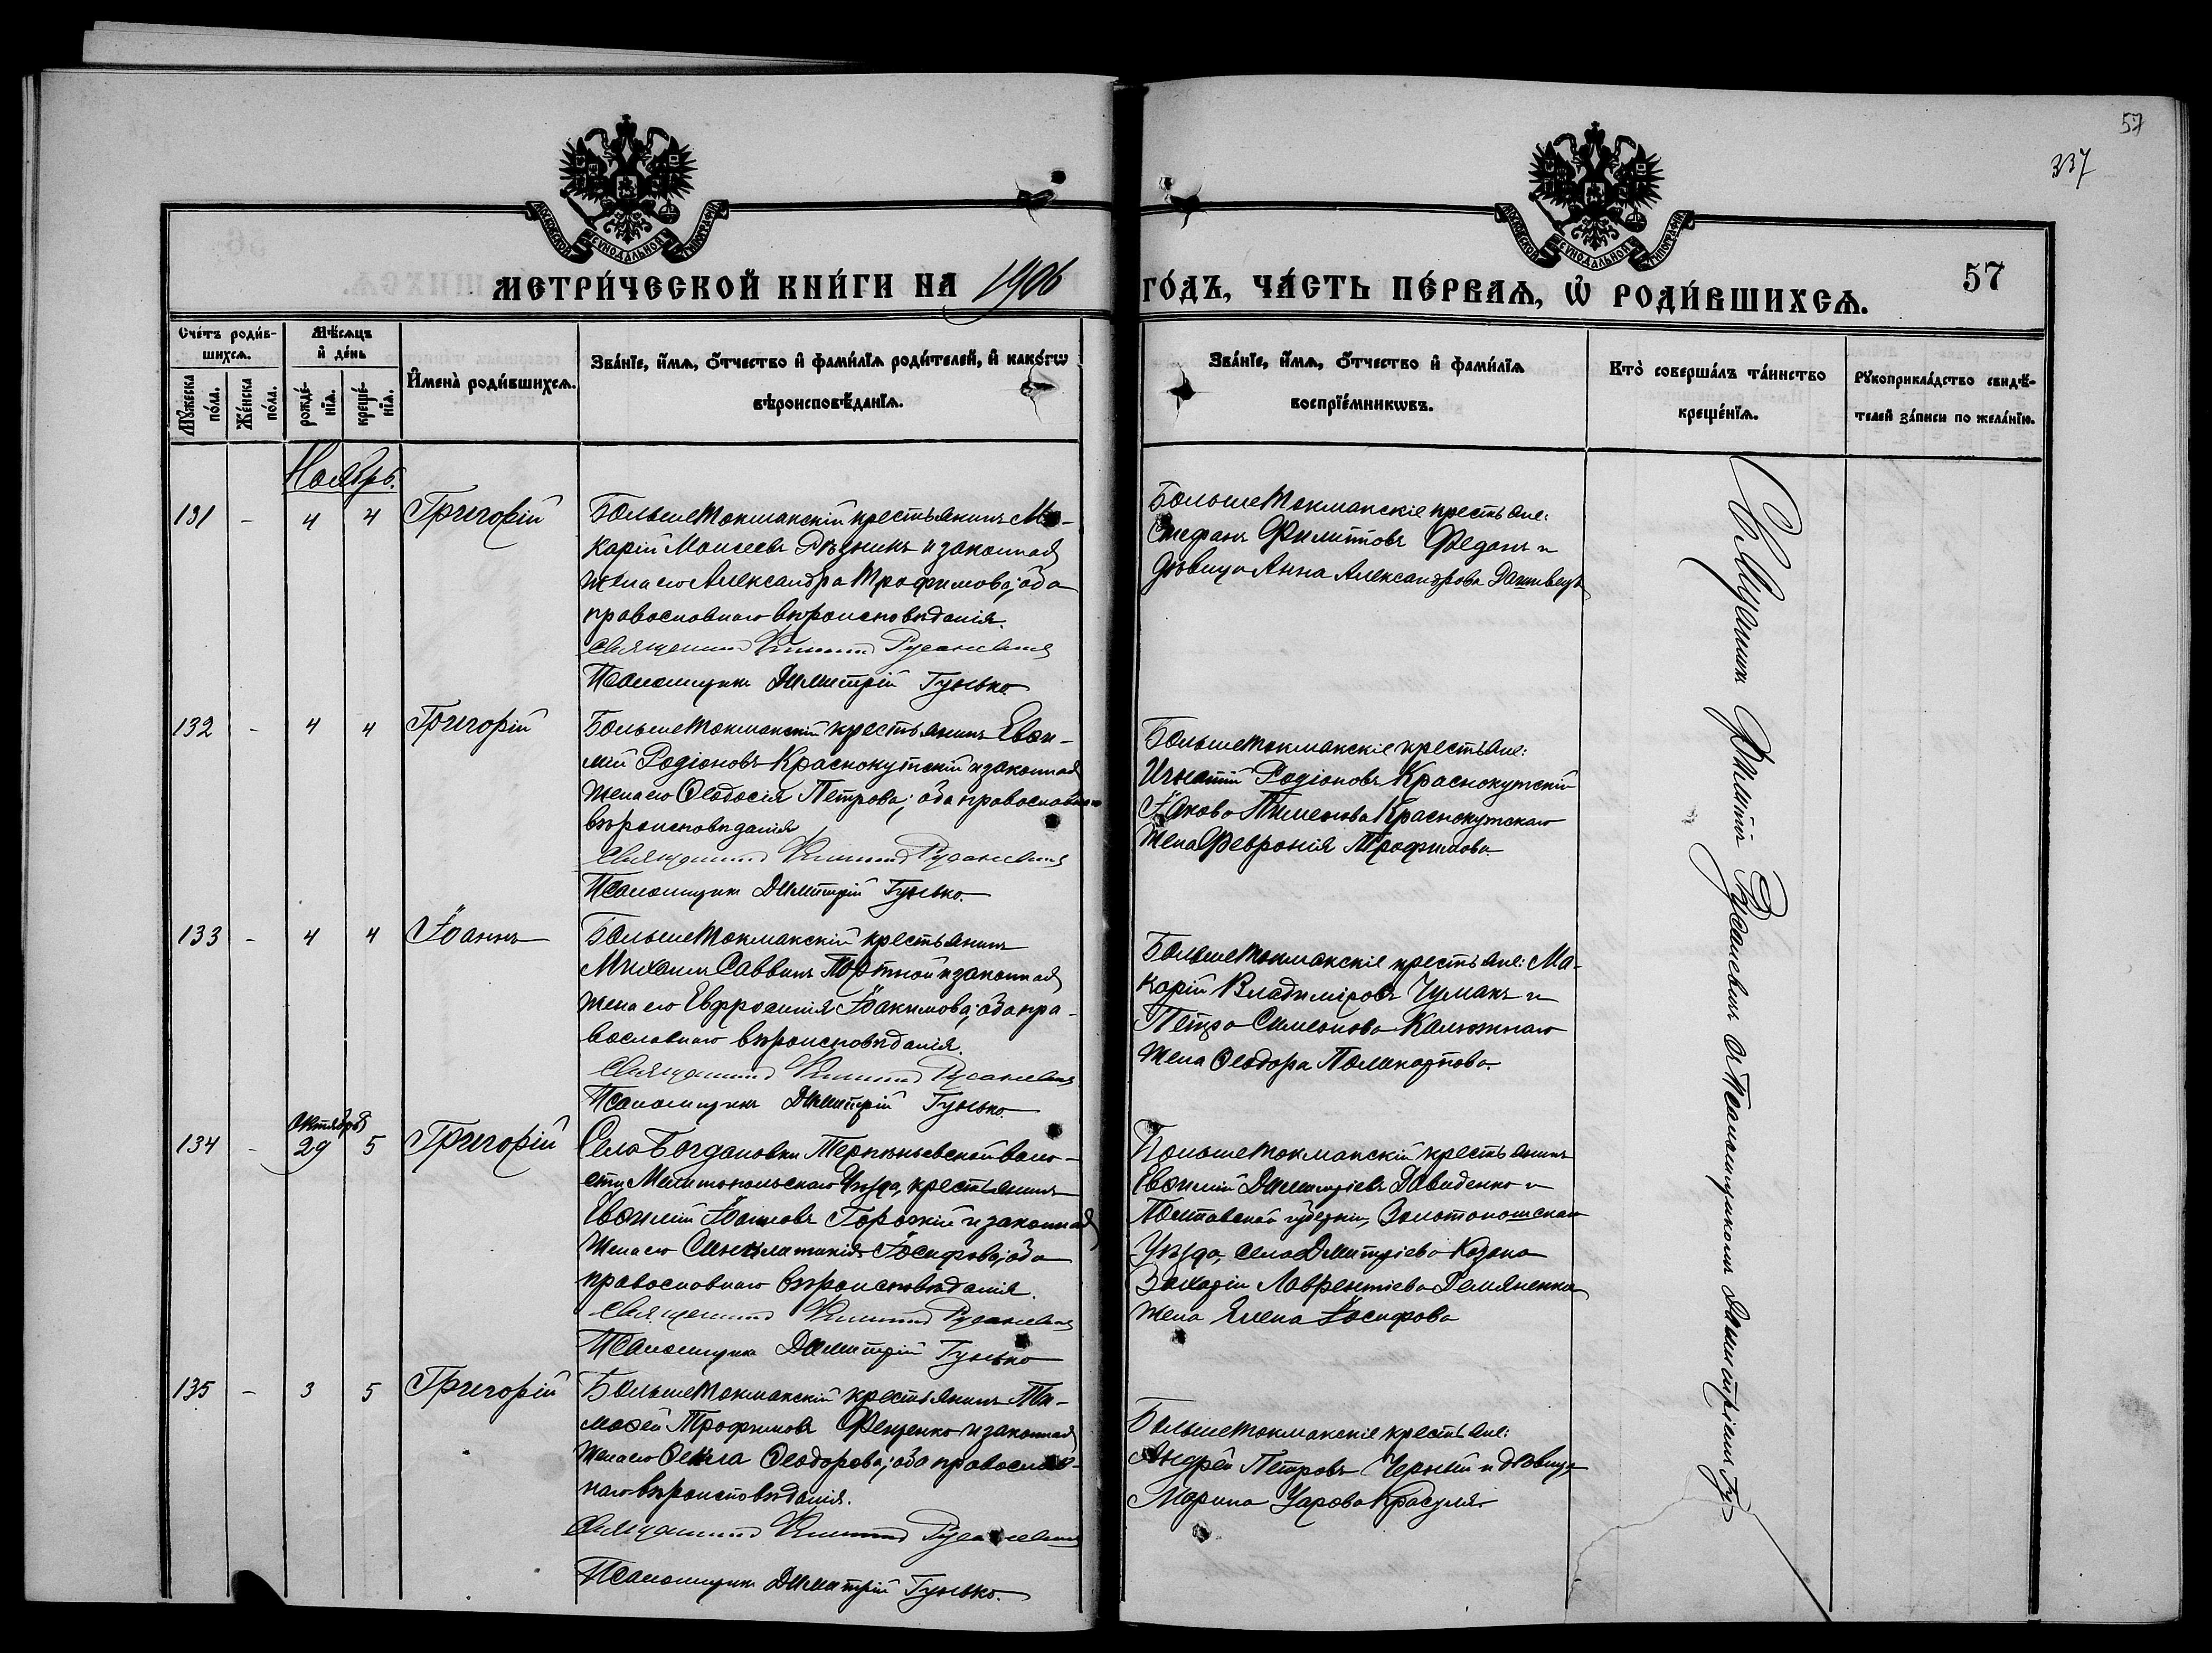 57
337
МОСКОВСКОЙ СУНОДАЛЬНОЙ ТИПОГРАФІИ
МОСКОВСКОЙ СУНОДАЛЬНОЙ ТИПОГРАФІИ
МЕТРИ́ЧЕСКОЙ КНИ́ГИ НА 1906
ГО́ДЪ, ЧА́СТЬ ПЕ́РВАѦ, Ѡ҆ РОДИ́ВШИХСѦ.
57
Сче́тъ роди́в-
шихсѧ.
Мꙋ́жеска по́ла.
Же́нска по́ла.
Мѣ́сѧцъ
и҆ де́нь
рожде́-нїѧ.
креще́-нїѧ.
И҆мена̀ роди́вшихсѧ.
Зва́нїе, и҆́мѧ, ѻ҆́тчество и҆ фами́лїѧ роди́телей, и҆ како́гѡ
вѣроисповѣ́данїѧ.
Зва́нїе, и҆́мѧ, ѻ҆́тчество и҆ фами́лїѧ
воспрїе́мникѡвъ.
Кто̀ соверша́лъ та́инство
креще́нїѧ.
Рꙋкоприкла́дство свидѣ́-
телей за́писи по жела́нїю.
Ноябрь.
131 - 4 4 Григорій
Большетокмакскій крестьянинъ Ма-
карій Моисеевъ Рѣзникъ и законная
жена его Александра Трофимова; оба
православнаго вѣроисповѣданія.
Священникъ Филиппъ Русаневичъ
Псаломщикъ Димитрій Гунько
Большетокмакскіе крестьяне:
Стефанъ Филипповъ Феданъ и
дѣвица Анна Александрова
132 - 4 4 Григорій
Большетокмакскій крестьянинъ Евѳи-
мій Родіоновъ Краснокутскій и законная
жена его Ѳеодосія Петрова; оба православнаго
вѣроисповѣданія
Священникъ Филиппъ Русаневичъ
Псаломщикъ Димитрій Гунько.
Большетокмакскіе крестьяне:
Игнатій Родіоновъ Краснокутскій
Іакова Пименова Краснокутскаго
жена Февронія Трофимова
133 - 4 4 Іоаннъ
Большетокмакскій крестьянинъ
Михаилъ Саввинъ Портной и законная
жена его Евфросинія Іоакимова; оба пра-
вославнаго вѣроисповѣданія.
Священникъ Филиппъ Русаневичъ
Псаломщикъ Димитрій Гунько.
Большетокмакскіе крестьяне: Ма-
карій Владиміровъ Чумакъ и
Петра Симеонова Калюжнаго
жена Ѳеодора Поликарпова
Октября
134 - 29 5 Григорій
Села Богдановки Терпѣньевской воло-
сти Мелитопольскаго Уѣзда, крестьянинъ
Евѳимій Іоанновъ Горожій и законная
жена его Синклитикія Іосифова; оба
православнаго вѣроисповѣданія.
Священникъ Филиппъ Русаневичъ
Псаломщикъ Димитрій Гунько
Большетокмакскій крестьянинъ
Евѳимій Димитріевъ Давиденко и
Полтавской губерніи, Золотоношскаго
Уѣзда, села Дмитріева Козака
Захарія Лаврентіева Демяненка
жена Елена Іосифова
135 - 3 5 Григорій
Большетокмакскій крестьянинъ Ти-
моѳей Трофимовъ Фещенко и законная
жена его Ѳекла Ѳеодорова; оба православ-
наго вѣроисповѣданія.
Священникъ Филиппъ Русаневичъ
Псаломщикъ Димитрій Гунько.
Большетокмакскіе крестьяне:
Андрей Петровъ Черный и дѣвица
Марина Уарова Красуля
Священникъ Филиппъ Русаневичъ съ Псаломщикомъ Димитріемъ Гу-